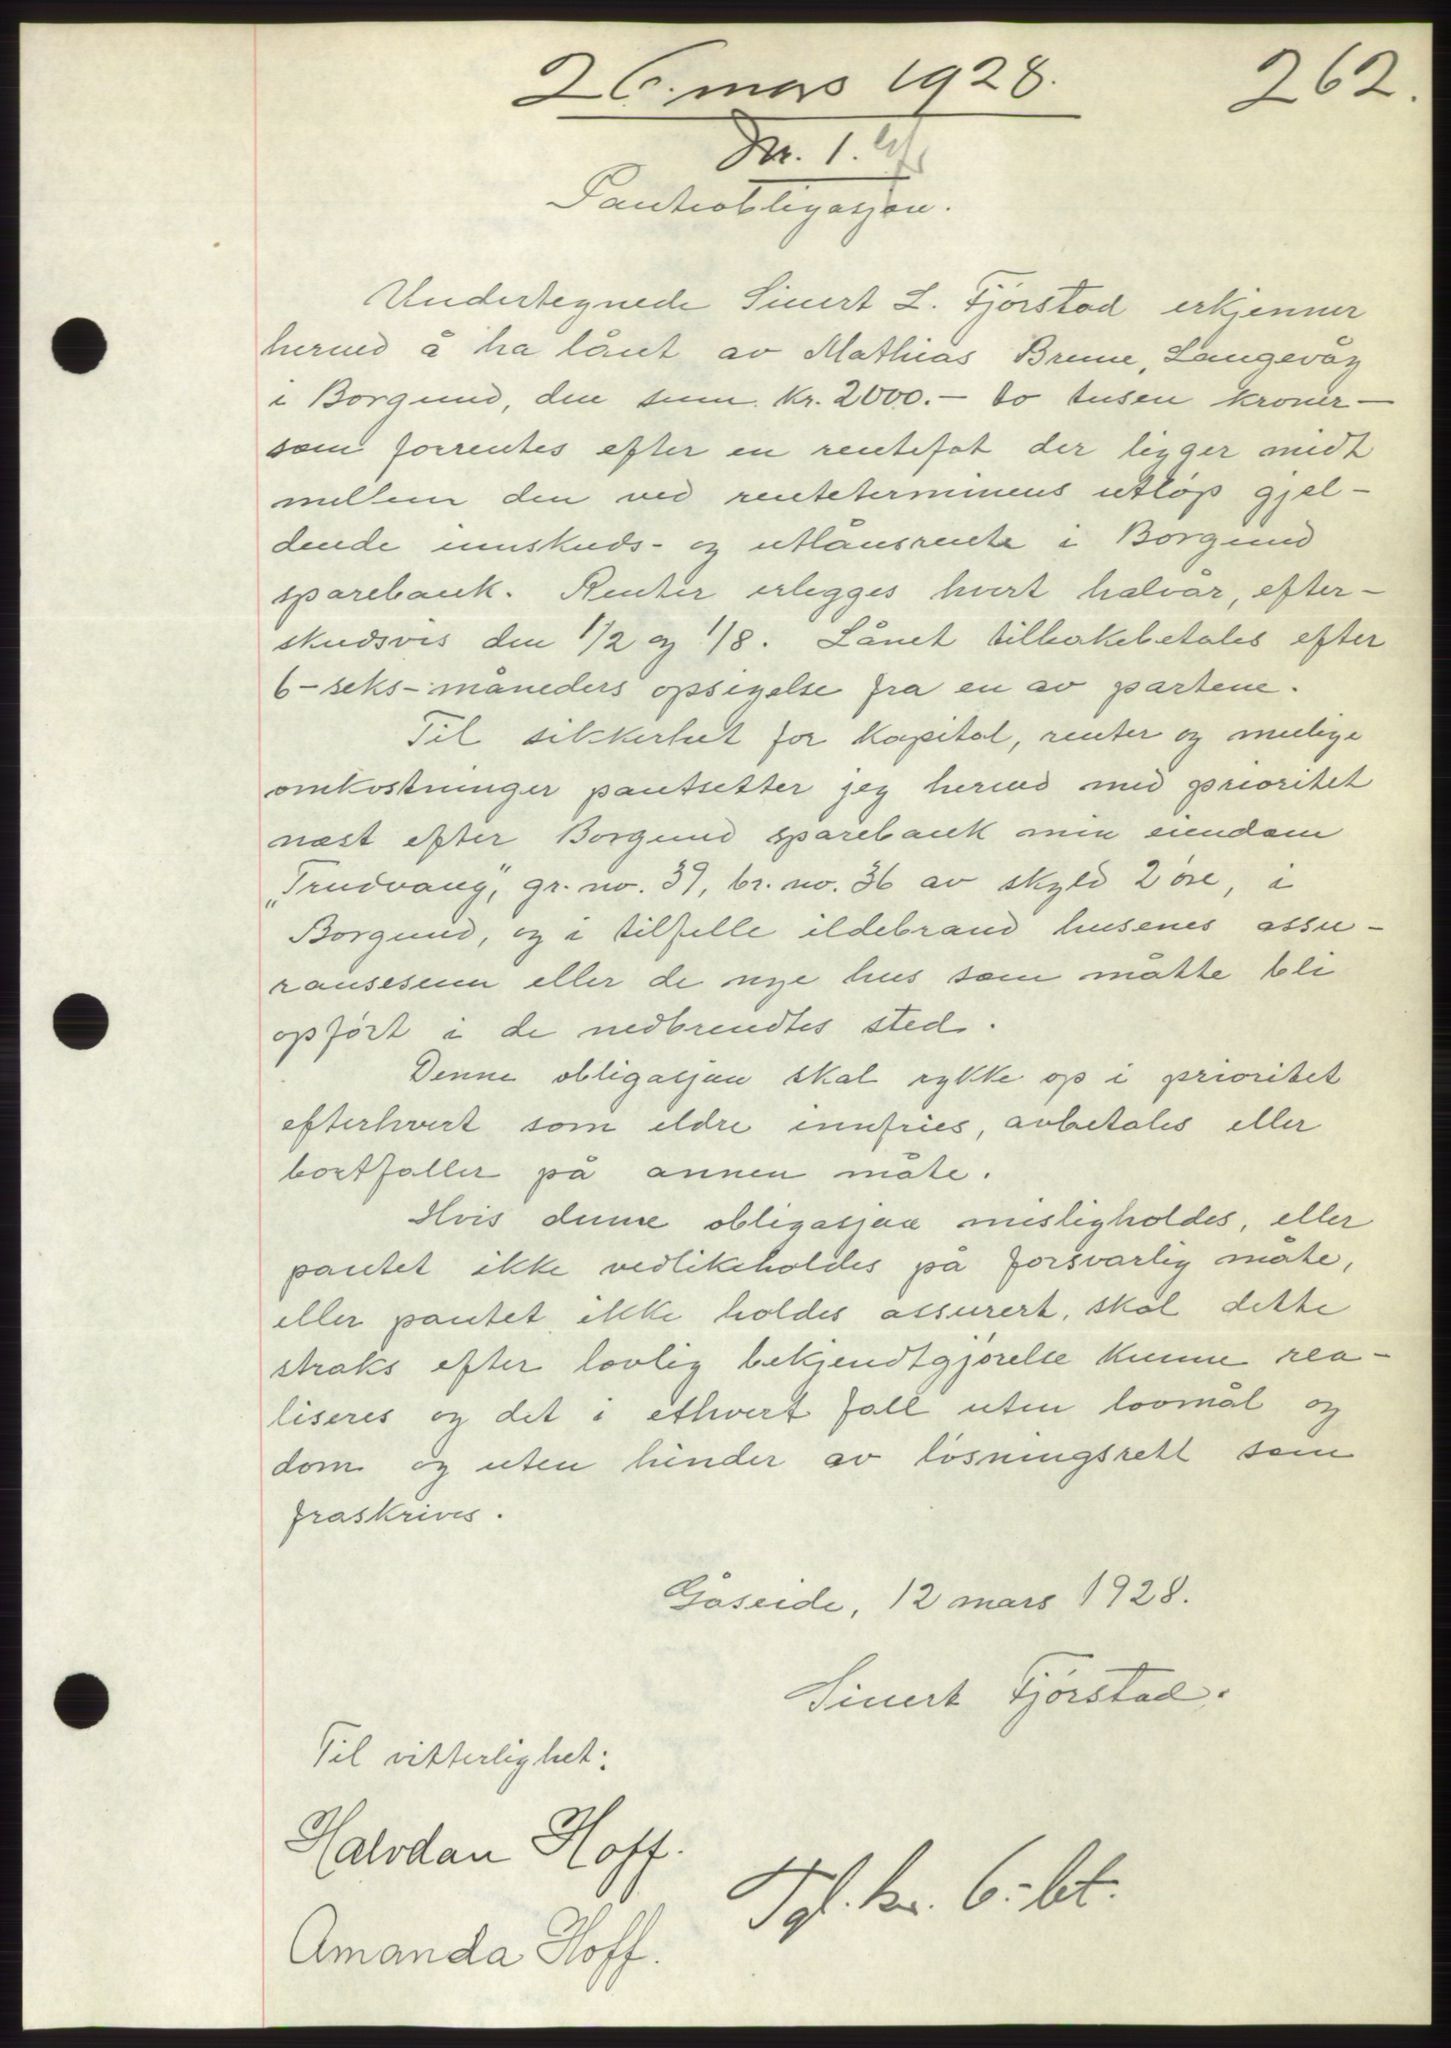 26. mars 1928.
262.
Nr. 1.
Panteobligasjon.
Undertegnede Sivert L. Fjørstad erkjenner
herved å ha lånt av Mathias Brune, Langevåg
i Borgund, den sum kr. 2000.— to tusen kroner—
som forrentes efter en rentefot der ligger midt
mellem den ved renteterminens utløp gjel-
dende innskuds- og utlånsrente i Borgund
sparebank. Renter erlegges hvert halvår, efter-
skudsvis den 1/2 og 1/8. Lånet tilbakebetales efter
6-seks-måneders opsigelse fra en av partene.
Til sikkerhet for kapital, renter og mulige
omkostninger pantsetter jeg herved med prioritet
næst efter Borgund sparebank min eiendom
„Trudvang", gr. no. 39, br. no. 36 av skyld 2 øre, i
Borgund, og i tilfelle ildebrand husenes assu-
ransesum eller de nye hus som måtte bli
opført i de nedbrendtes sted.
Denne obligasjon skal rykke op i prioritet
efterhvert som eldre innfries, avbetales eller
bortfaller på annen måte.
Hvis denne obligasjon misligholdes, eller
pantet ikke vedlikeholdes på forsvarlig måte,
eller pantet ikke holdes assurert, skal dette
straks efter lovlig bekjendtgjørelse kunne rea-
liseres og det i ethvert fall uten lovmål og
dom og uten hinder av løsningsrett som
fraskrives.
Gåseide, 12 mars 1928.
Sivert Fjørstad.
Til vitterlighet:
Halvdan Hoff.
Amanda Hoff.
Tgl. kr. 6.- bt.